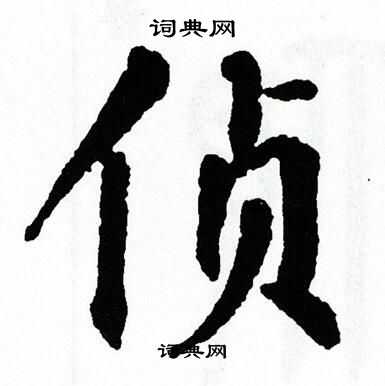 词典网
侦
词典网